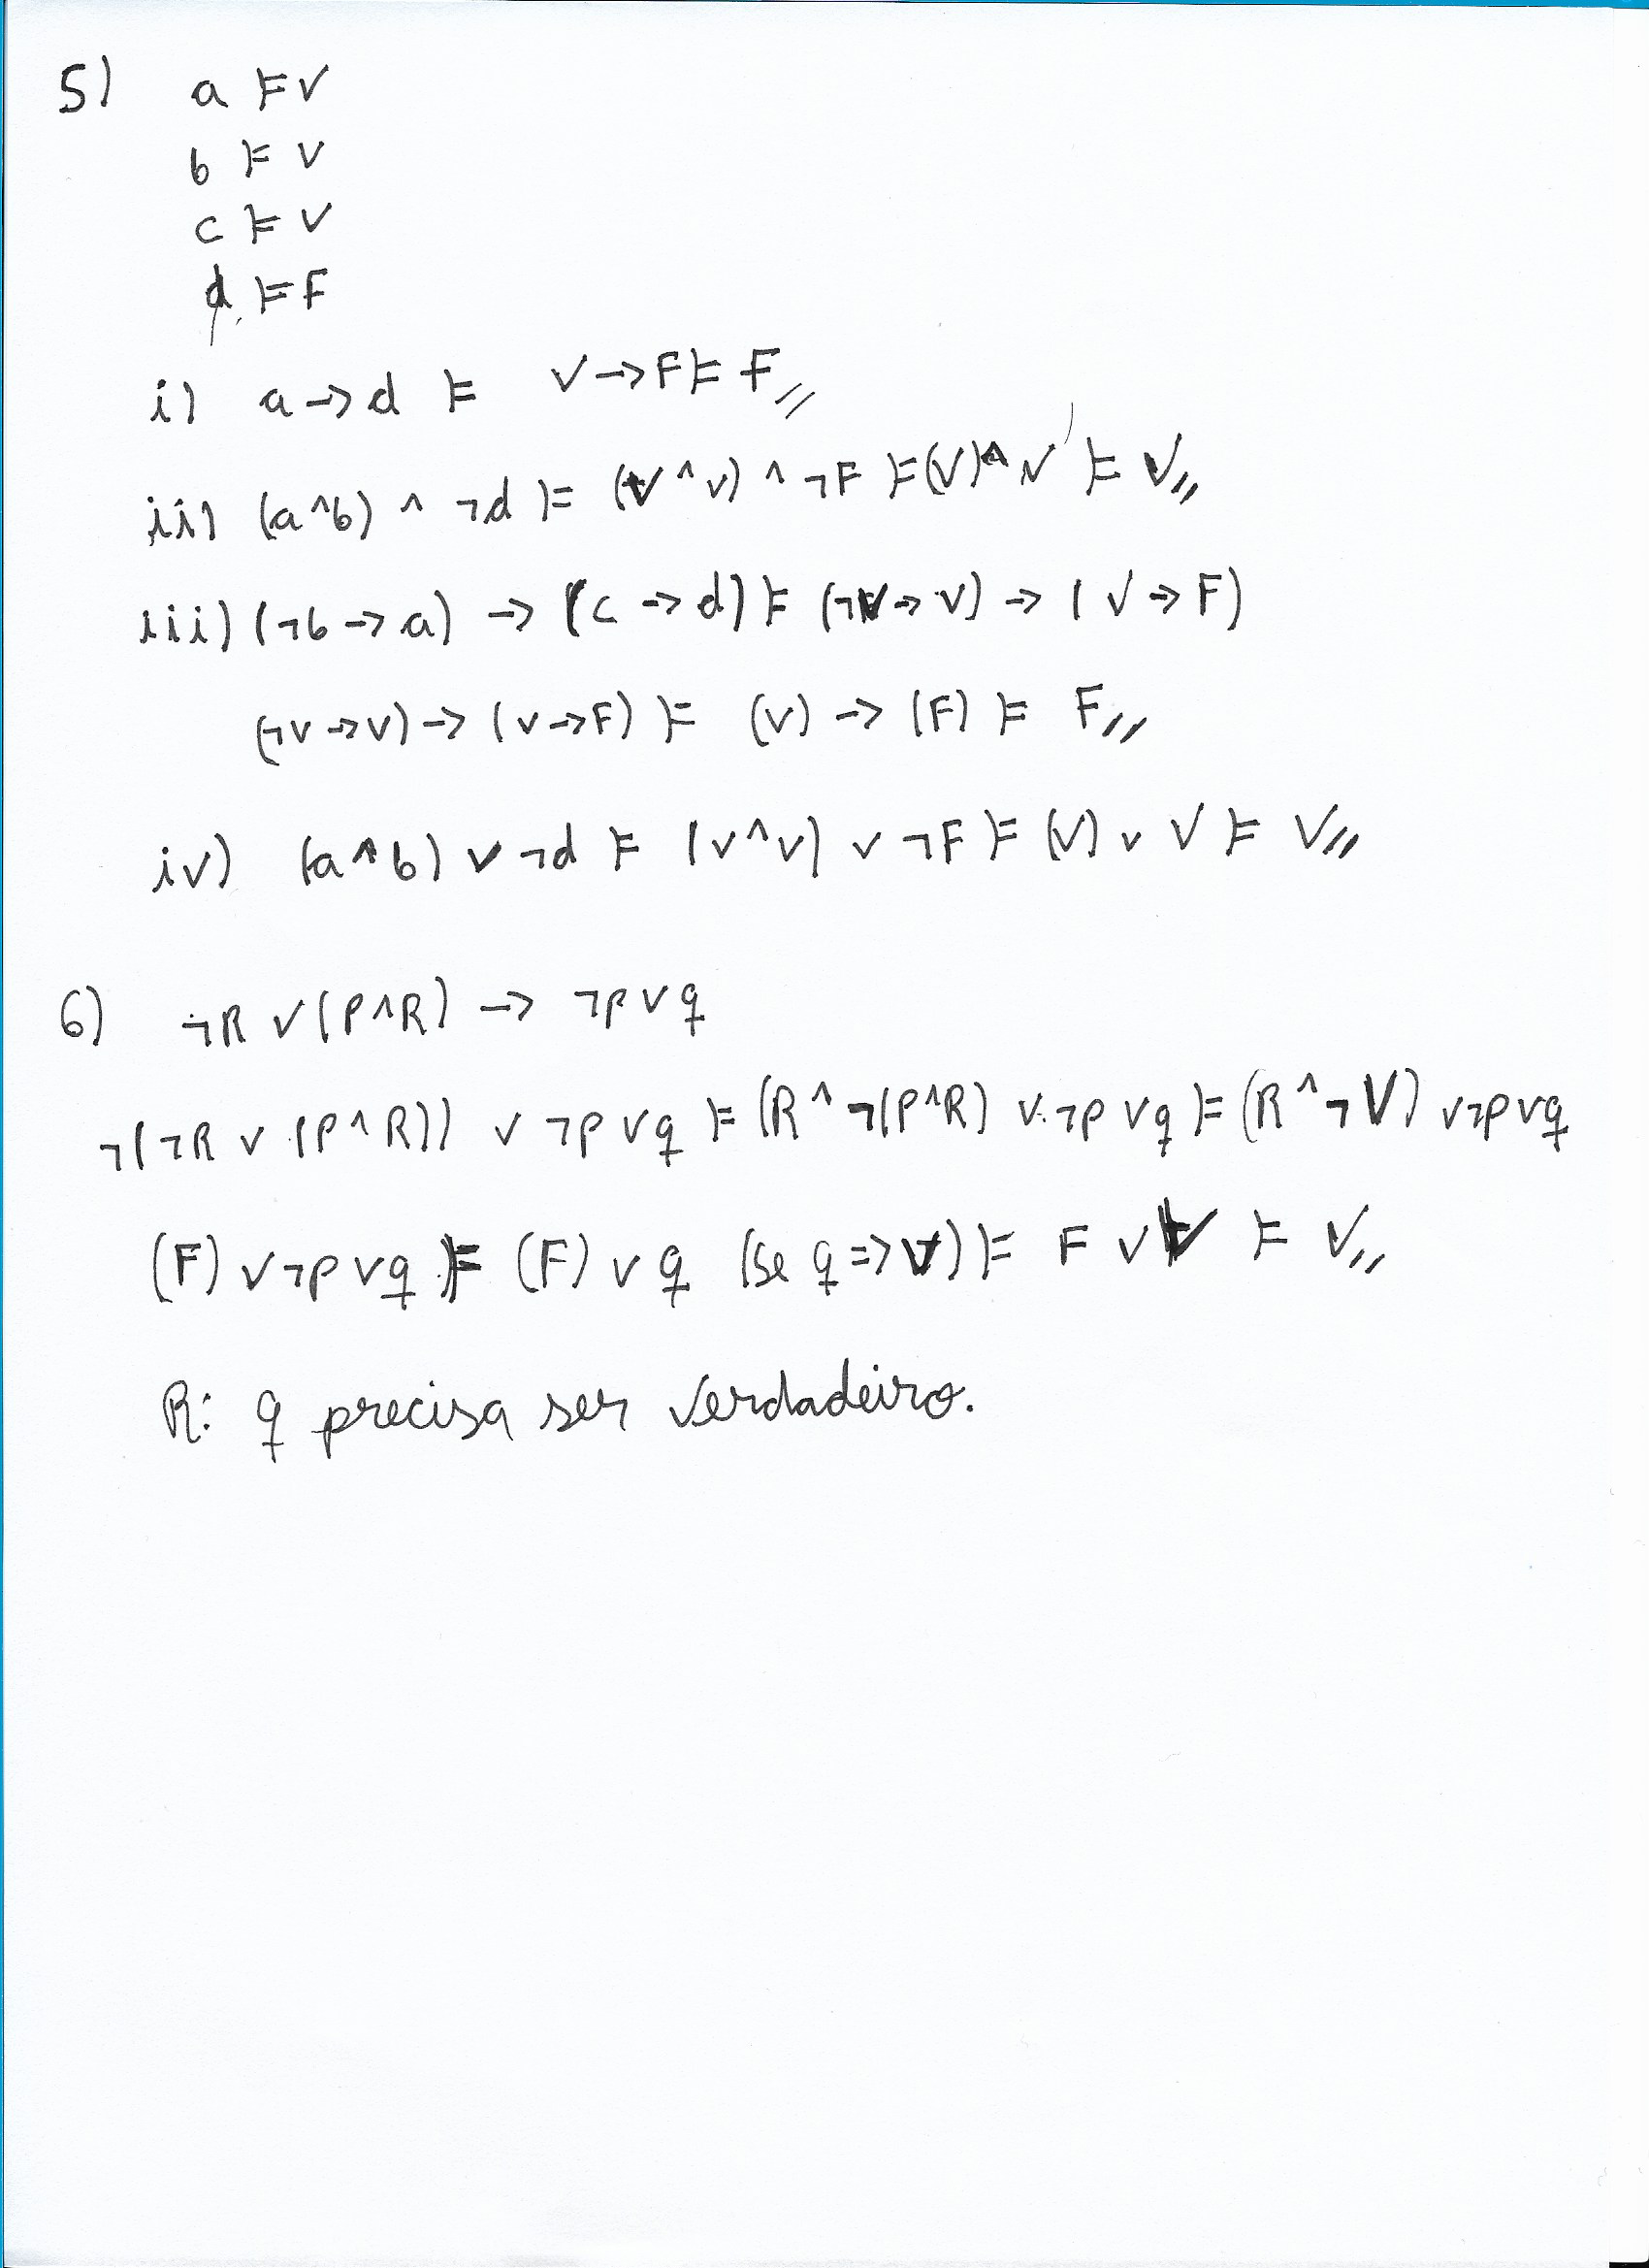 5) a ⊨ V
b ⊨ V
c ⊨ V
d ⊨ F
i) a → d ⊨ V → F ⊨ F //
ii) (a ^ b) ^ ¬d ⊨ (V ^ V) ^ ¬F ⊨ (V) ^ V ⊨ V //
iii) (¬b → a) → (c → d) ⊨ (¬V → V) → (V → F)
(¬V → V) → (V → F) ⊨ (V) → (F) ⊨ F //
iv) (a ^ b) v ¬d ⊨ (V ^ V) v ¬F ⊨ (V) v V ⊨ V //
6) ¬R v (P ^ R) → ¬p v q
¬(¬R v (P ^ R)) v ¬p v q ⊨ (R ^ ¬(P ^ R) v ¬p v q ⊨ (R ^ ¬V) v ¬p v q
(F) v ¬p v q ⊨ (F) v q (se q => V) ⊨ F v V ⊨ V //
R: q precisa ser verdadeiro.